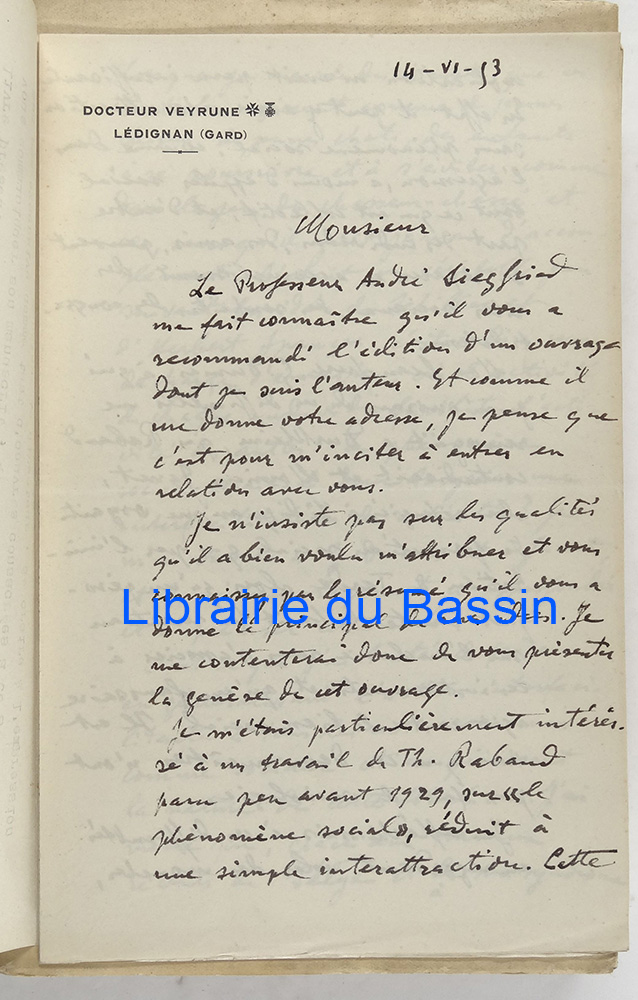 14-VI-53
DOCTEUR VEYRUNE
LÉDIGNAN (GARD)
Monsieur
Le Professeur André Siegfried
me fait connaître qu'il vous a
recommandé l'édition d'un ouvrage
dont je suis l'auteur. Et comme il
me donne votre adresse, je pense que
c'est pour m'inciter à entrer en
relation avec vous.
Je n'insiste pas sur les qualités
qu'il a bien voulu m'attribuer et vous
connaissez par le résumé qu'il vous a
donné le principal de mes idées. Je
me contenterai donc de vous présenter
la genèse de cet ouvrage.
Je m'étais particulièrement intéres-
sé à un travail de Th. Rabaud
paru peu avant 1929, sur «le
phénomène social», réduit à
une simple interattraction. Cette
Librairie du Bassin